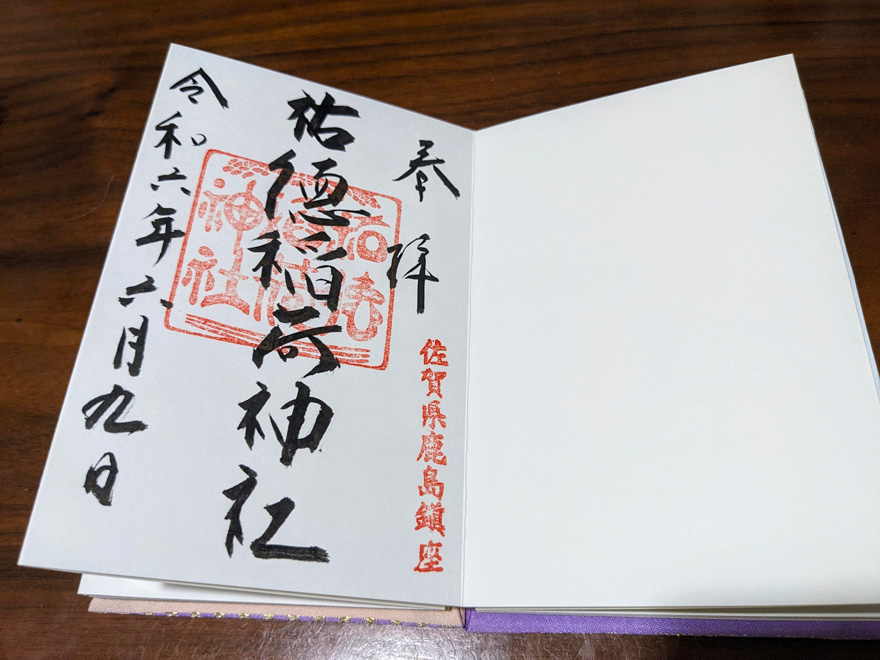 奉拝
佐賀県鹿島鎮座
祐徳稲荷神社
祐徳
稲荷
神社
令和六年六月九日